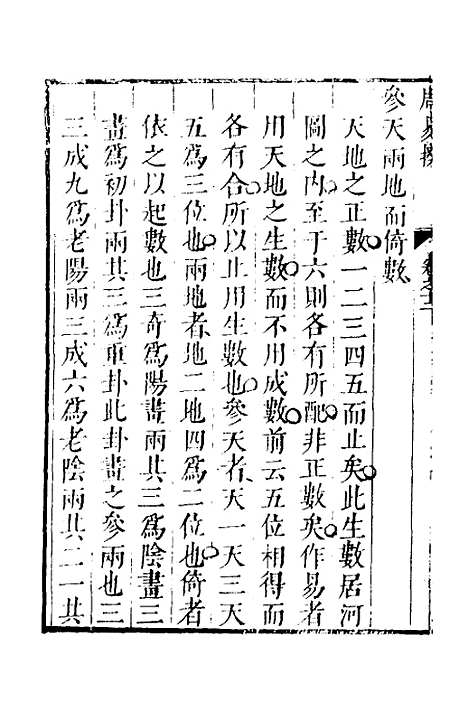 參天兩地而倚數
天地之正數一二三四五而止矣此生數居河
圖之內至于六則各有所配非正數矣作易者
用天地之生數而不用成數前云五位相得而
各有合所以止用生數也參天者天一天三天
五爲三位也兩地者地二地四爲二位也倚者
依之以起數也三奇爲陽畫兩其三爲陰畫三
畫爲初卦兩其三爲重卦此卦畫之參兩也三
三成九爲老陽兩三成六爲老陰兩其二一其